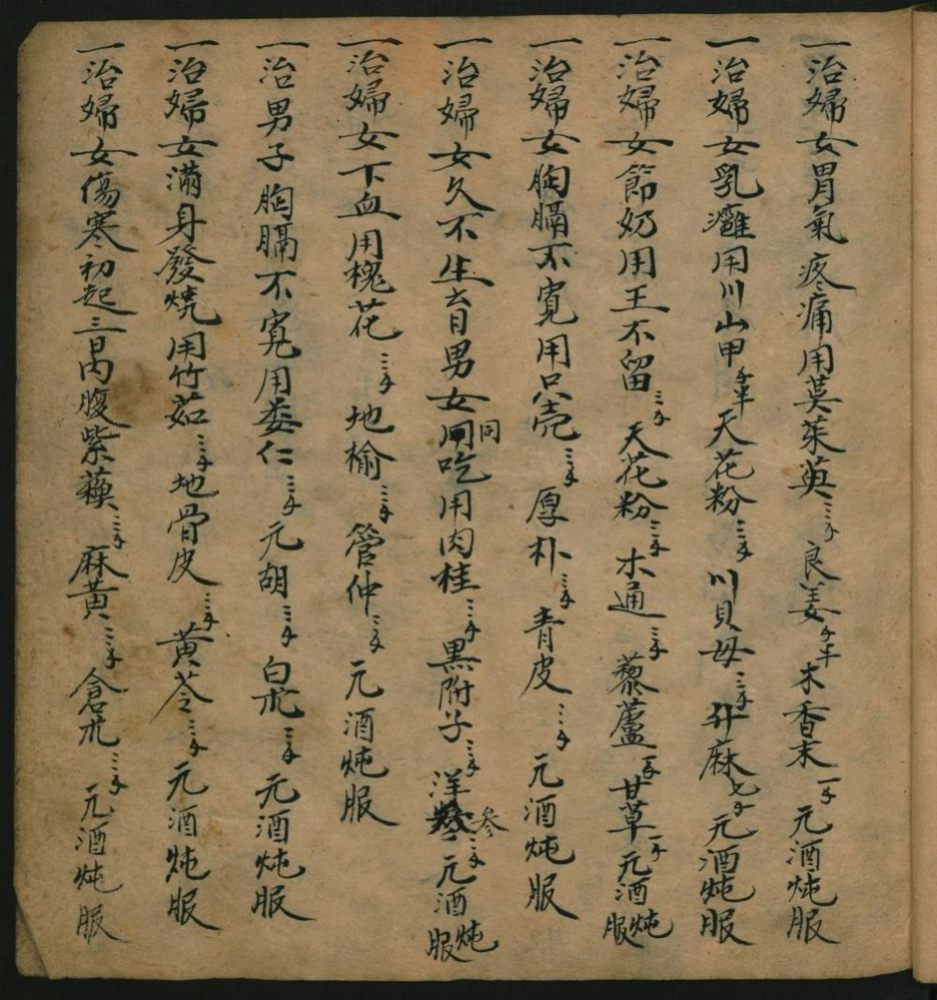 一治婦女胃氣疼痛用萸茱英三子良姜子半木香末一子元酒炖服
一治婦女乳癰用川山甲子半天花粉三子川貝母三子升麻七子元酒炖服
一治婦女節奶用王不留三子天花粉三子木通三子藜蘆一子甘草一子元酒炖服
一治婦女胸膈不寬用只壳三子厚朴三子青皮三子元酒炖服
一治婦女久不生育男女同吃用肉桂三子黑附子三子洋參三子元酒炖服
一治婦女下血用槐花三子地榆三子管仲三子元酒炖服
一治男子胸膈不寬用委仁三子元胡三子白朮三子元酒炖服
一治婦女滿身發燒用竹茹三子地骨皮三子黃芩三子元酒炖服
一治婦女傷寒初起三日內腹紫蘓三子麻黃三子倉朮三子元酒炖服